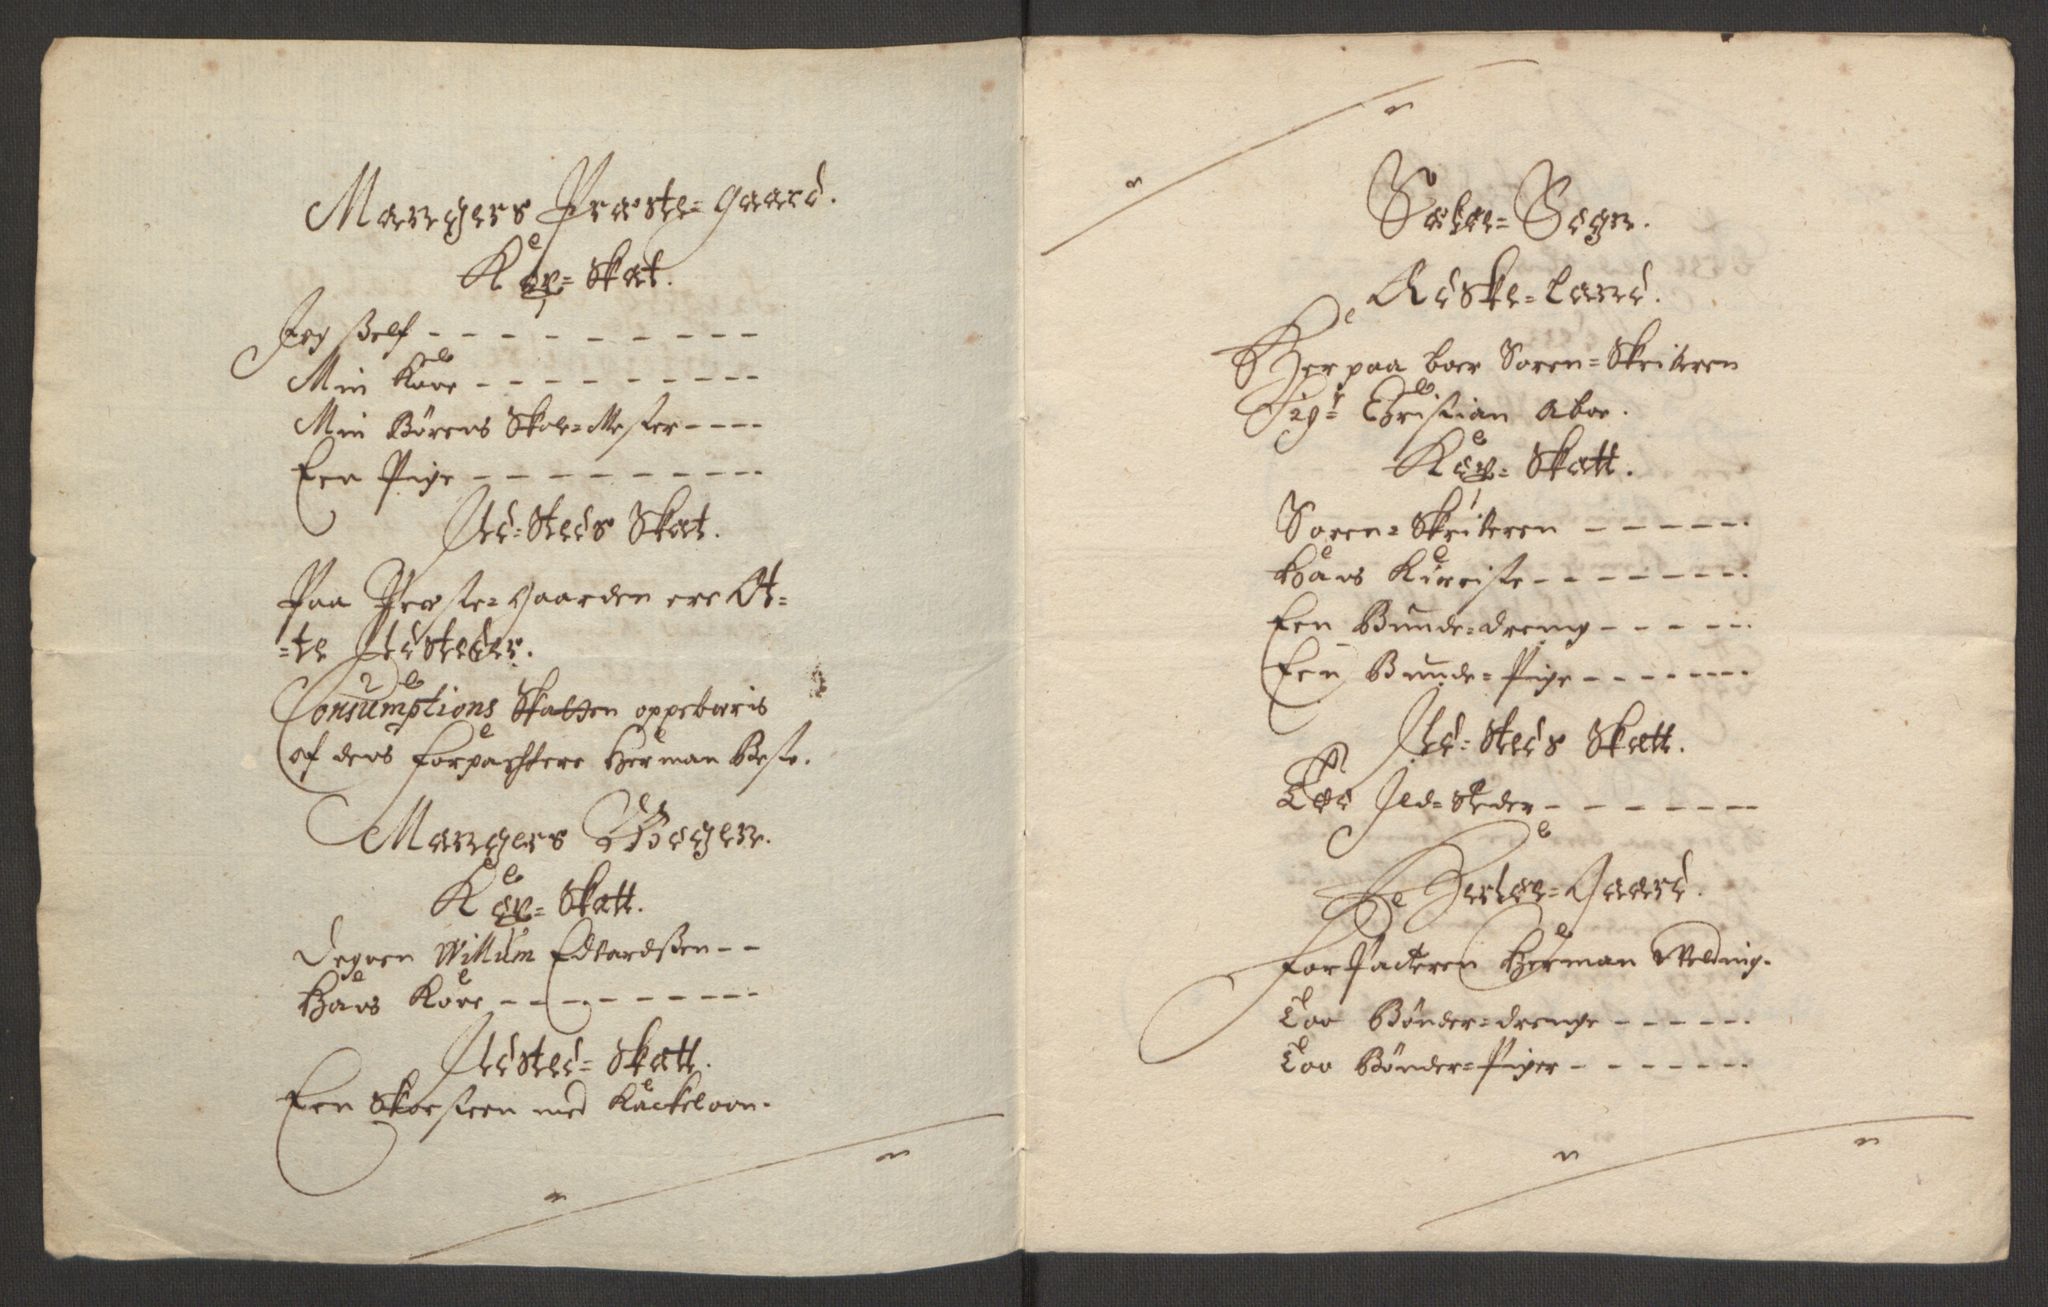 Mangers Præste-gaard.
Kop-Skat.
Jeg self
Min Kone
Min Børens Skole-Mester
Een Pige
Ild-Steds Skat.
Paa Præste-gaarden ere Ot-
-te Ildsteder.
Consumptions Skatten oppebæris
af dens forpachtere Herman Beste.
Mangers Wogen.
Kop-Skatt.
Degnen Willum Edvardsen
Hans Kone
Ildsted-Skatt.
Een Skorsteen med Kackeloon.
Sæbøe-Sogn.
Adske-Land.
Her paa boer Soren-Skriveren
Sigr Christian Aboe.
Kop-Skatt.
Soren-Skriveren
Hans Kieriste
Een Bunde-dreng
Een Bunde-Pige
Ild-Steds Skatt.
Toe Ild-steder
Herløe-Gaard.
forPacteren Herman Welding.
Too Bønder-drenge
Too Bønder-Piger